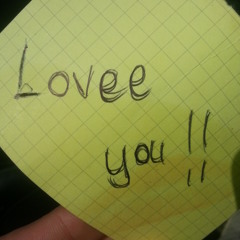 Lovee
you!!